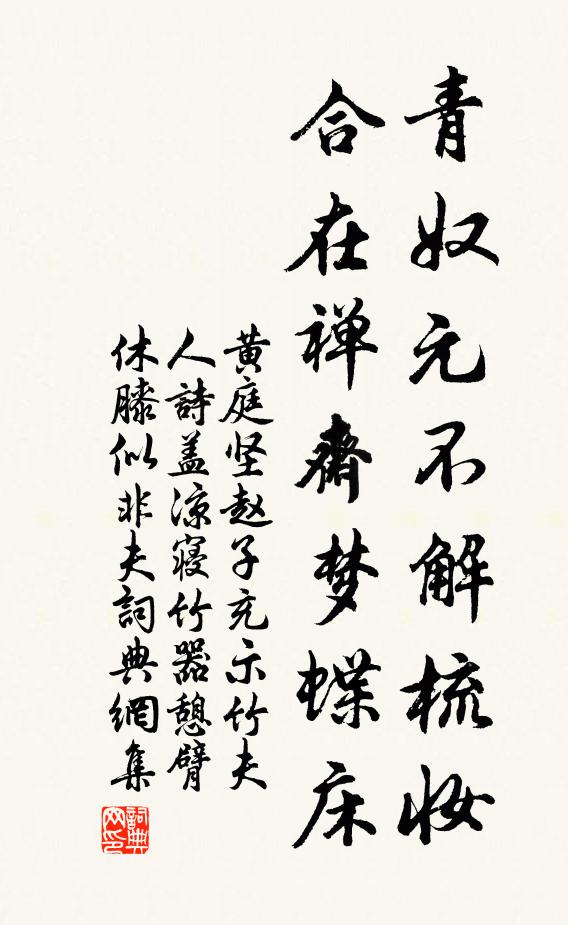 青奴元不解梳妆
合在禅齋梦蝶床
黄庭坚赵子充示竹夫
人詩盖凉寝竹器憩臂
休膝似非夫詞典網集
詞典
网印